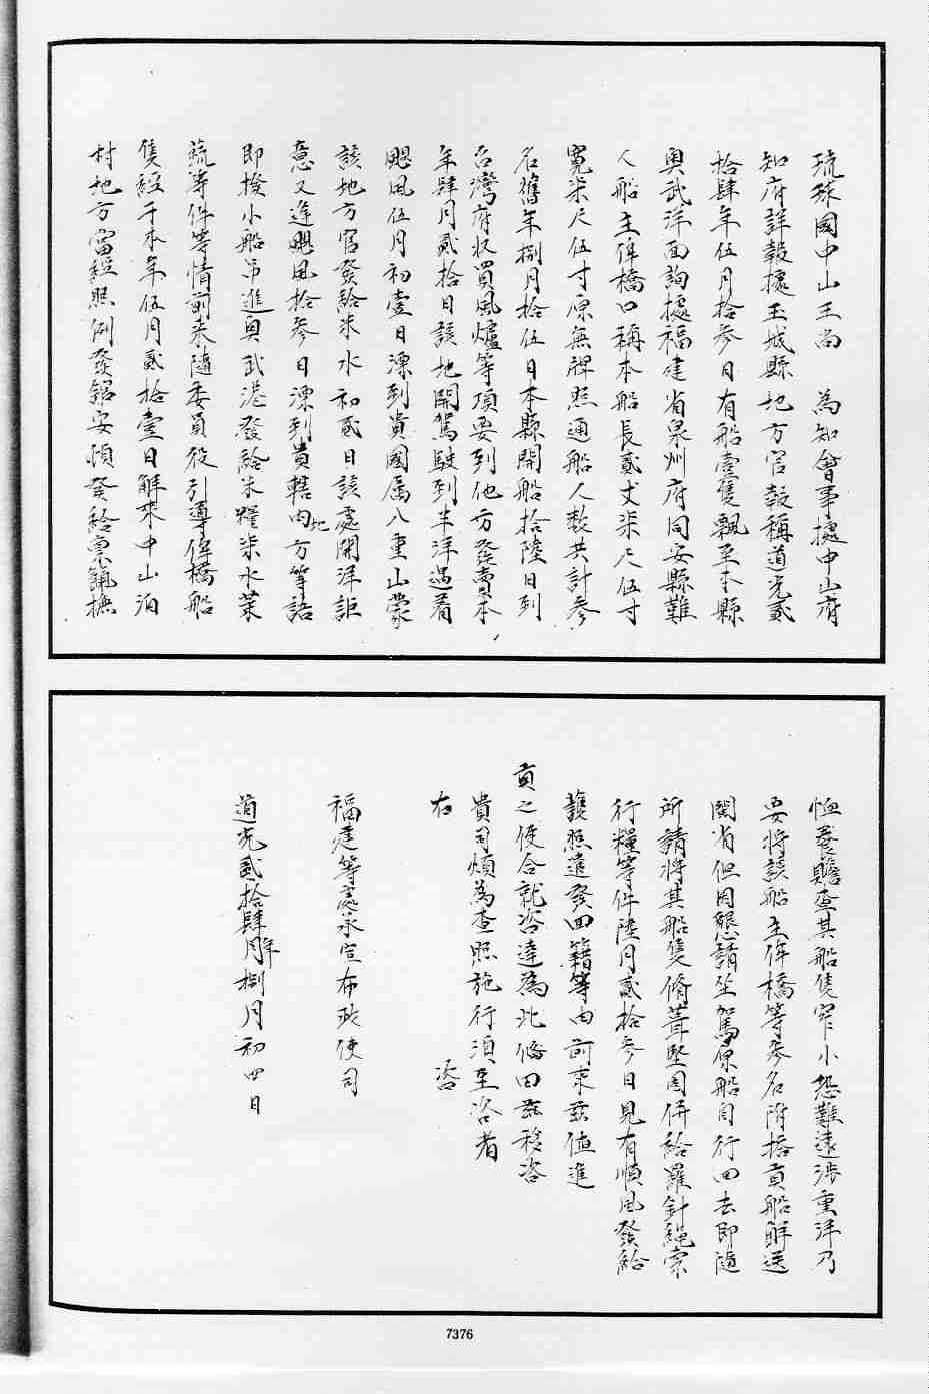 琉球國中山王尚　為知會事據中山府
知府詳報據玉城縣地方官報稱道光貳
拾肆年伍月拾參日有船壹隻飄至本縣
奧武洋面詢據福建省泉州府同安縣難
人船主侔橋口稱本船長貳丈柒尺伍寸
寬柒尺伍寸原無牌照通船人數共計參
名舊年捌月拾伍日本縣開船拾陸日到
台灣府收買風爐等項要到他方發賣本
年肆月貳拾日該地開駕駛到半洋遇着
颶風伍月初壹日漂到貴國属八重山蒙
該地方官發給米水初貳日該處開洋詎
意又逢颶風拾參日漂到貴轄內地方等語
即撥小船吊進奧武港發給米糧柒水菜
蔬等件等情前来隨委員役引導侔橋船
隻經于本年伍月貳拾壹日解來中山泊
村地方當經照例發館安頓發給稟餼撫
恤養贍查其船隻窄小恐難遠涉重洋乃
要将該船主侔橋等參名附搭貢船解送
閩省但因懇請坐駕原船自行回去即隨
所請將其船隻脩葺堅固併給羅針繩索
行糧等件陸月貳拾參日見有順風發給
護照遣發回籍等由前来茲值進
貢之便合就咨達為此備由茲移咨
貴司煩為查照施行須至咨者
右　咨
福建等處承宣布政使司
道光貳拾肆年捌月初四日
7376